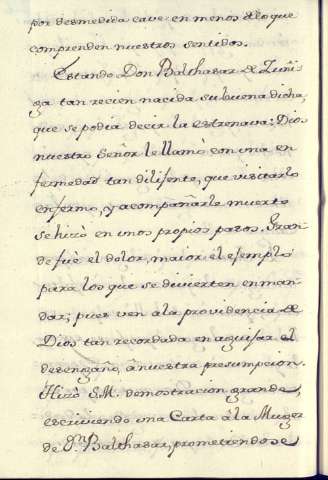 por desmedida cave en menos de lo que
comprenden nuestros sentidos.
Estando Don Balthasar de Zuñi
ga tan recien nacida su buena dicha,
que se podia decir la estrenava: Dios
nuestro Señor le llamó con una en
fermedad tan diligente, que visitarlo
enfermo, y acompañarle muerto
se hizo en unos propios pasos. Gran
de fue el dolor, maior el ejemplo
para los que se divierten en man
dar; pues ven â la providencia de
Dios tan recordada en avisar el
desengaño, â nuestra presumpcion.
Hizo S.M. demostracion grande,
escriviendo una Carta â la Muger
de Dn. Balthasar, prometiendose